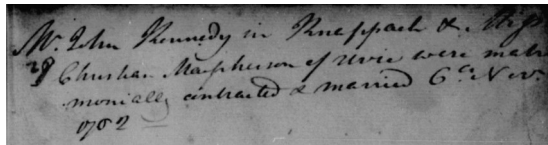 Mr. John Kennedy in Knappach & Miss
29 Christian Macpherson of uvie were matri
monially contracted & married 6th Novr.
1752